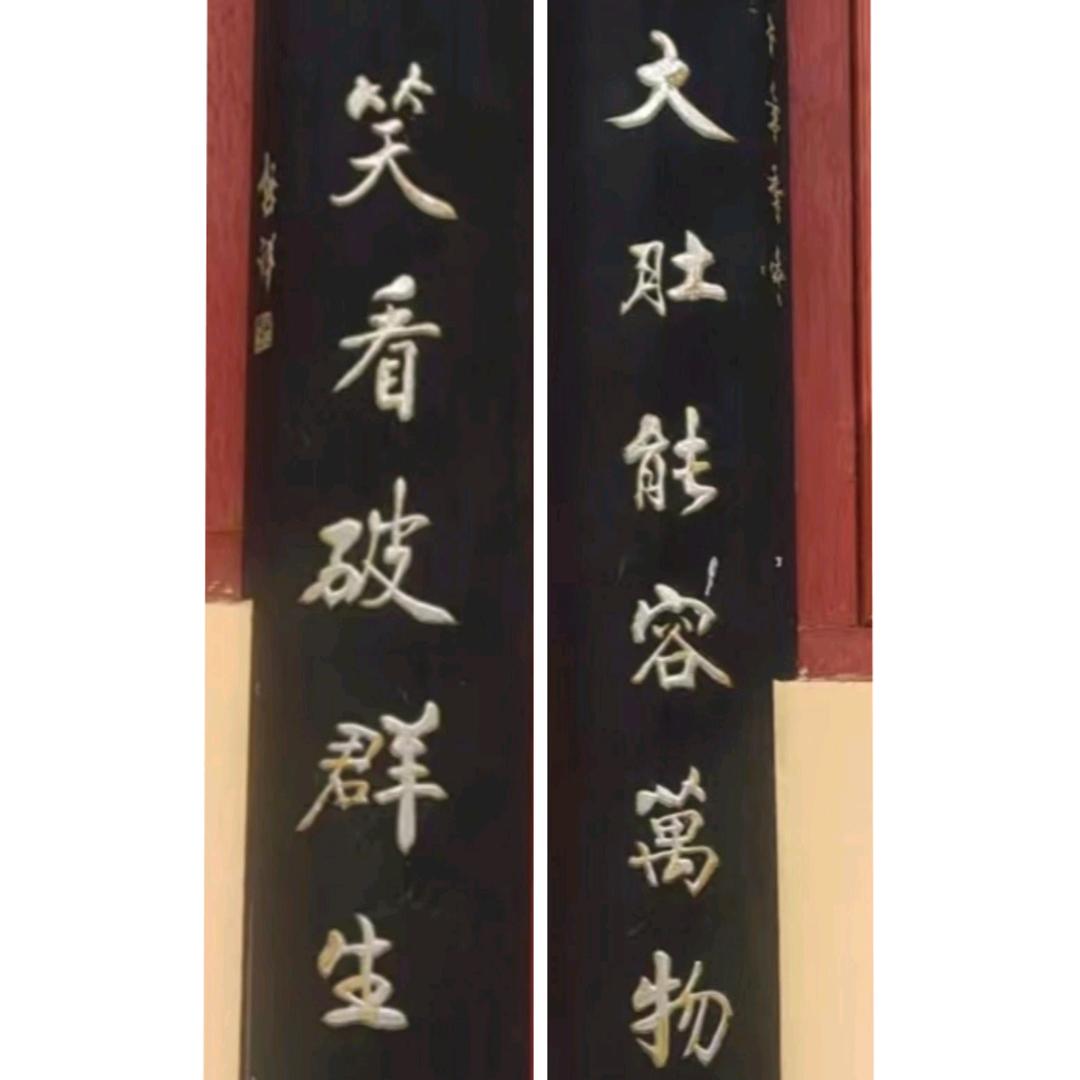 大肚能容萬物
笑看破群生